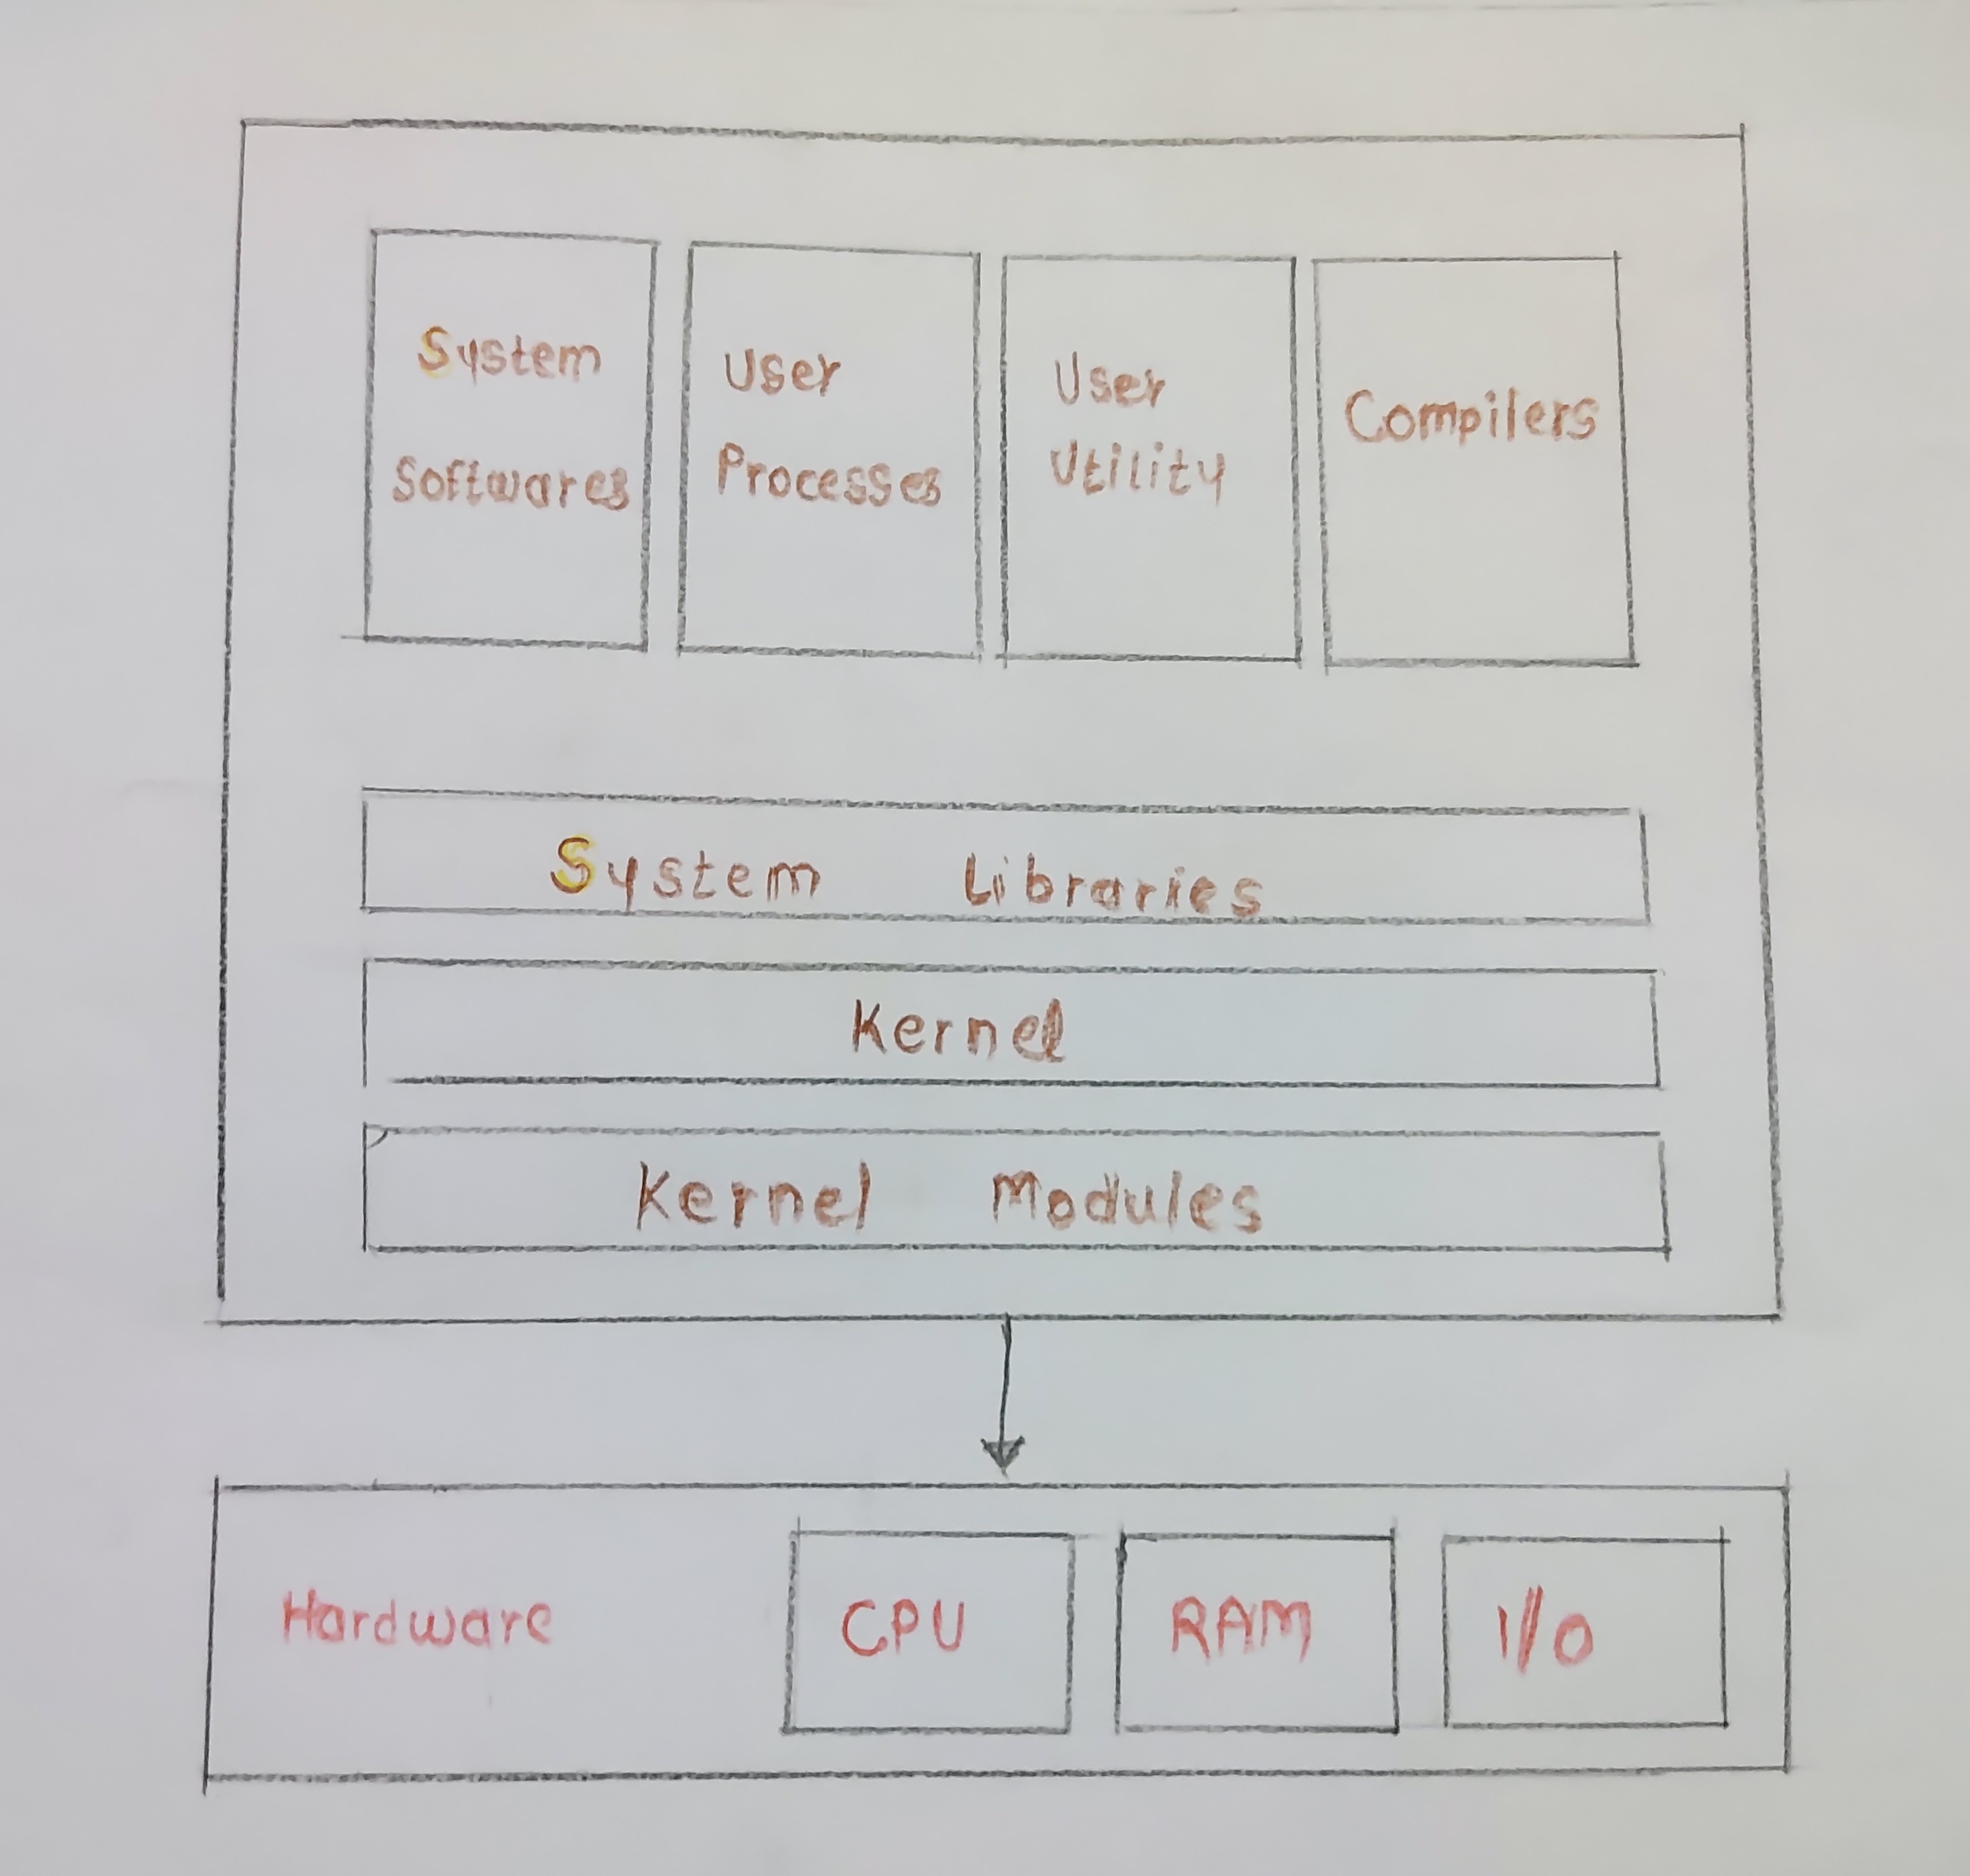 System
Softwares
User
Processes
User
Utility
Compilers
System Libraries
Kernel
Kernel Modules
Hardware
CPU
RAM
I/O